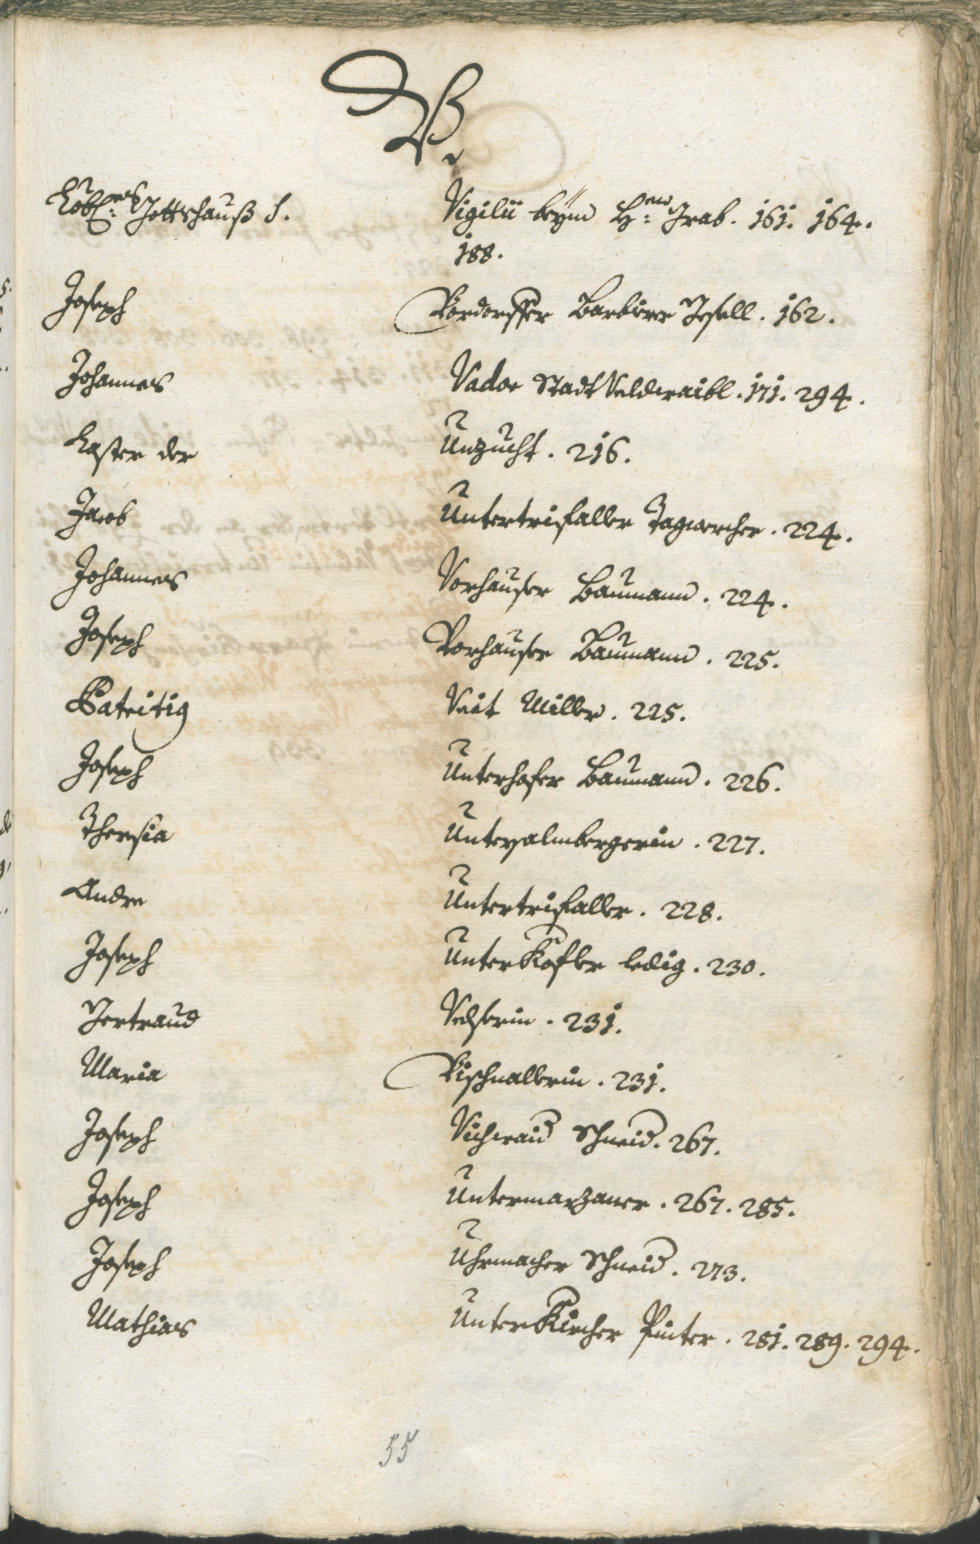 V.
Löbl: Gottshauß S. Vigilii beÿm H: Grab. 161. 164.
188.
Joseph Vordorffer Barbierr Gsell. 162.
Johannes Vador Stadt Veldwaibl. 171. 294.
Laster der Unzucht. 216.
Jacob Untertrifaller Tagwercher. 224.
Johannes Vorhauser Baumann. 224.
Joseph Vorhauser Baumann. 225.
Veit Miller. 225.
Joseph Unterhofer Baumann. 226.
Theresia Untersalmbergerin. 227.
Andre Untertrifaller. 228.
Joseph Unter Kofler ledig. 230.
Gertraud Velserin. 231.
Maria Vischnallerin. 231.
Joseph Vichwaid Schneid. 267.
Joseph Untermarzaner. 267. 285.
Joseph Uhrmacher Schneid. 273.
Mathias Unter Kircher Pinter. 281. 289. 294.
55